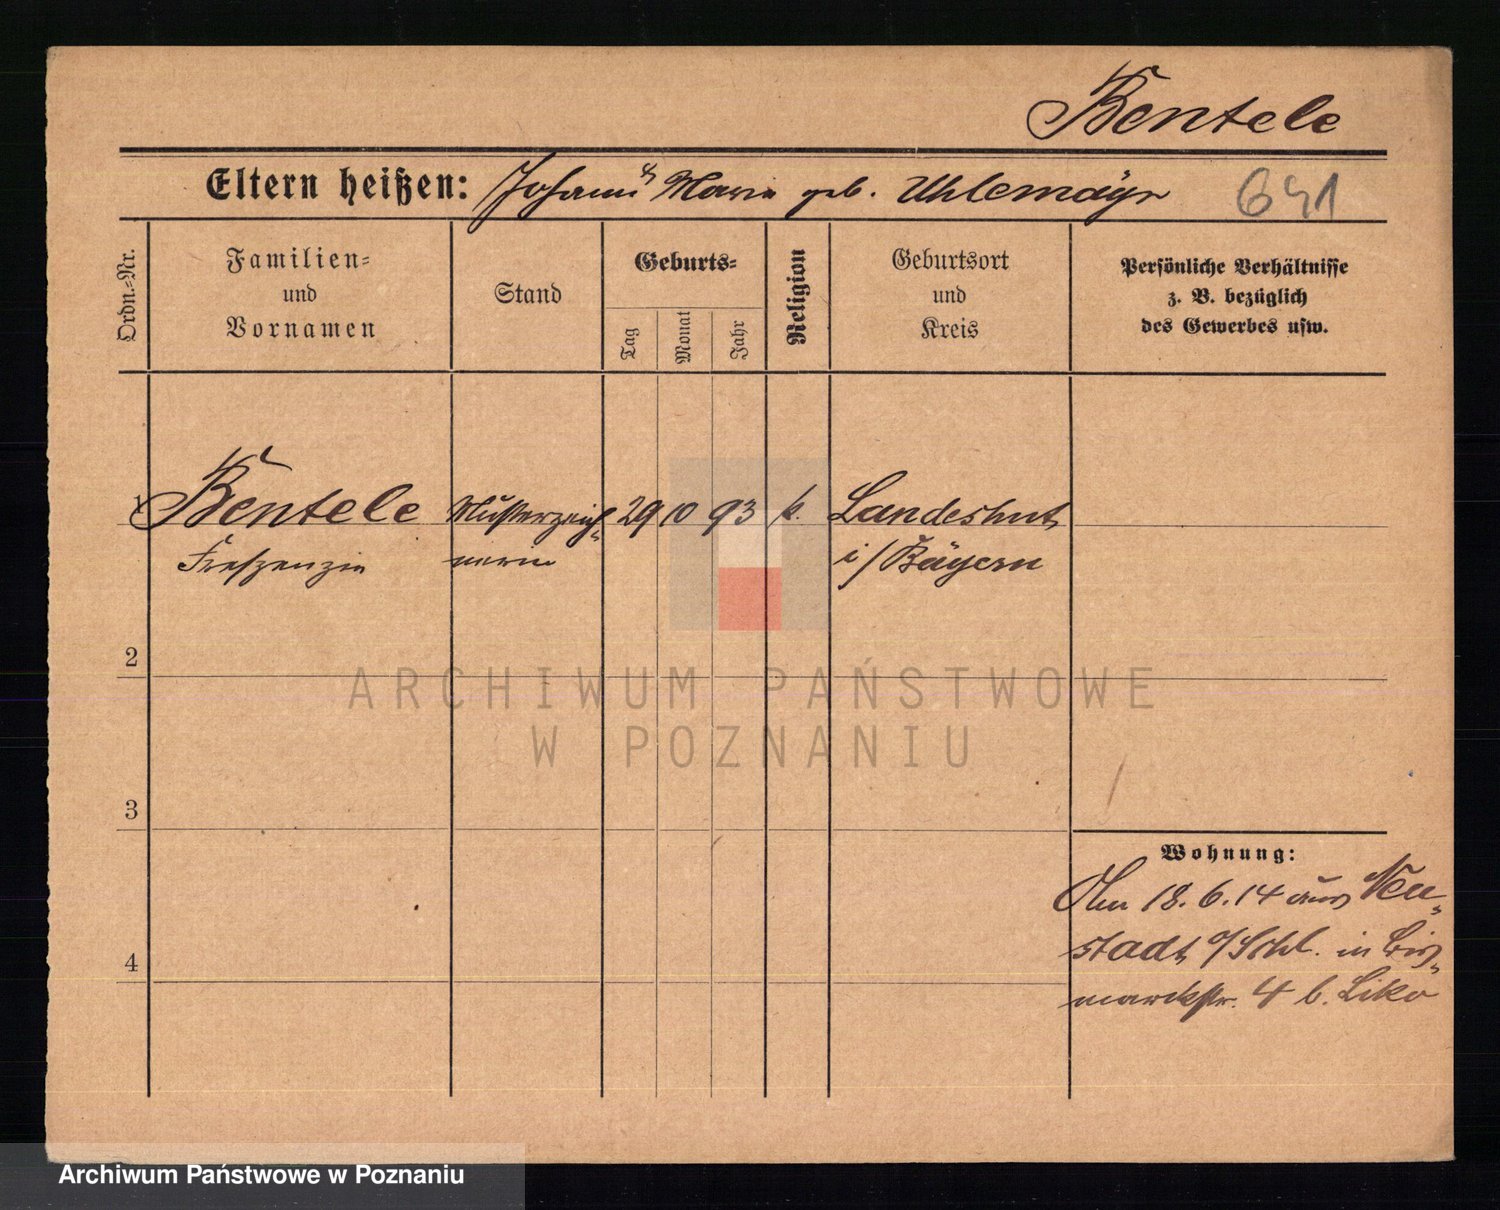 Bentele
Eltern heißen: Johann & Maria geb. Uhlemayr 641
Ordn.-Nr.
Familien-
und
Vornamen
Stand
Geburts-
Tag
Monat
Jahr
Religion
Geburtsort
und
Kreis
Persönliche Verhältnisse
z. B. bezüglich
des Gewerbes usw.
1 Bentele Musterzeich- 29 10 93 k. Landeshut
nerin i/Bayern
2
3
4
Wohnung:
Am 18.6.14 aus Neu-
stadt o/Schl. in Bis-
marckstr. 4 b. Liko
ARCHIWUM PAŃSTWOWE
W POZNANIU
Archiwum Państwowe w Poznaniu